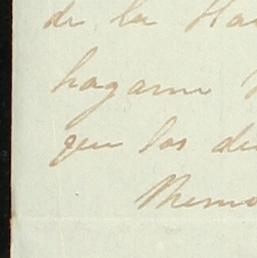 de la Ha
hagame
que los de
Memo